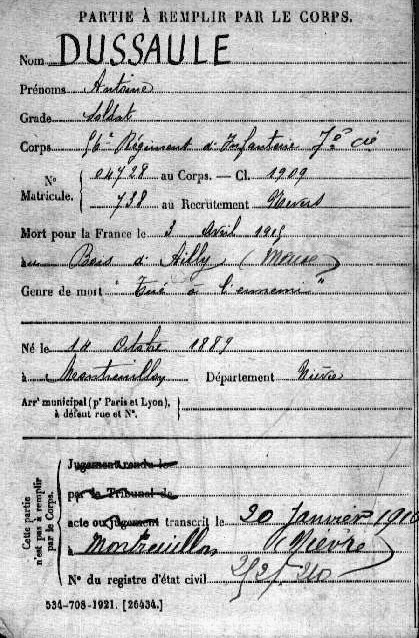 PARTIE À REMPLIR PAR LE CORPS.
Nom DUSSAULE
Prénoms Antoine
Grade Soldat
Corps 56e Régiment d'Infanterie 7e Cie
No Matricule. { 04728 au Corps. — Cl. 1909
738 au Recrutement Nevers
Mort pour la France le 3 Avril 1915
au Bois d'Ailly (Meuse)
Genre de mort "Tué à l'ennemi"
Né le 10 Octobre 1889
à Montreuillon Département Nièvre
Arrt municipal (pr Paris et Lyon),
à défaut rue et No.
Cette partie n'est pas à remplir par le Corps.
Jugement rendu le
par le Tribunal de
acte ou jugement transcrit le 20 Janvier 1916
à Montreuillon Nièvre
No du registre d'état civil
534-708-1921. [26434.]